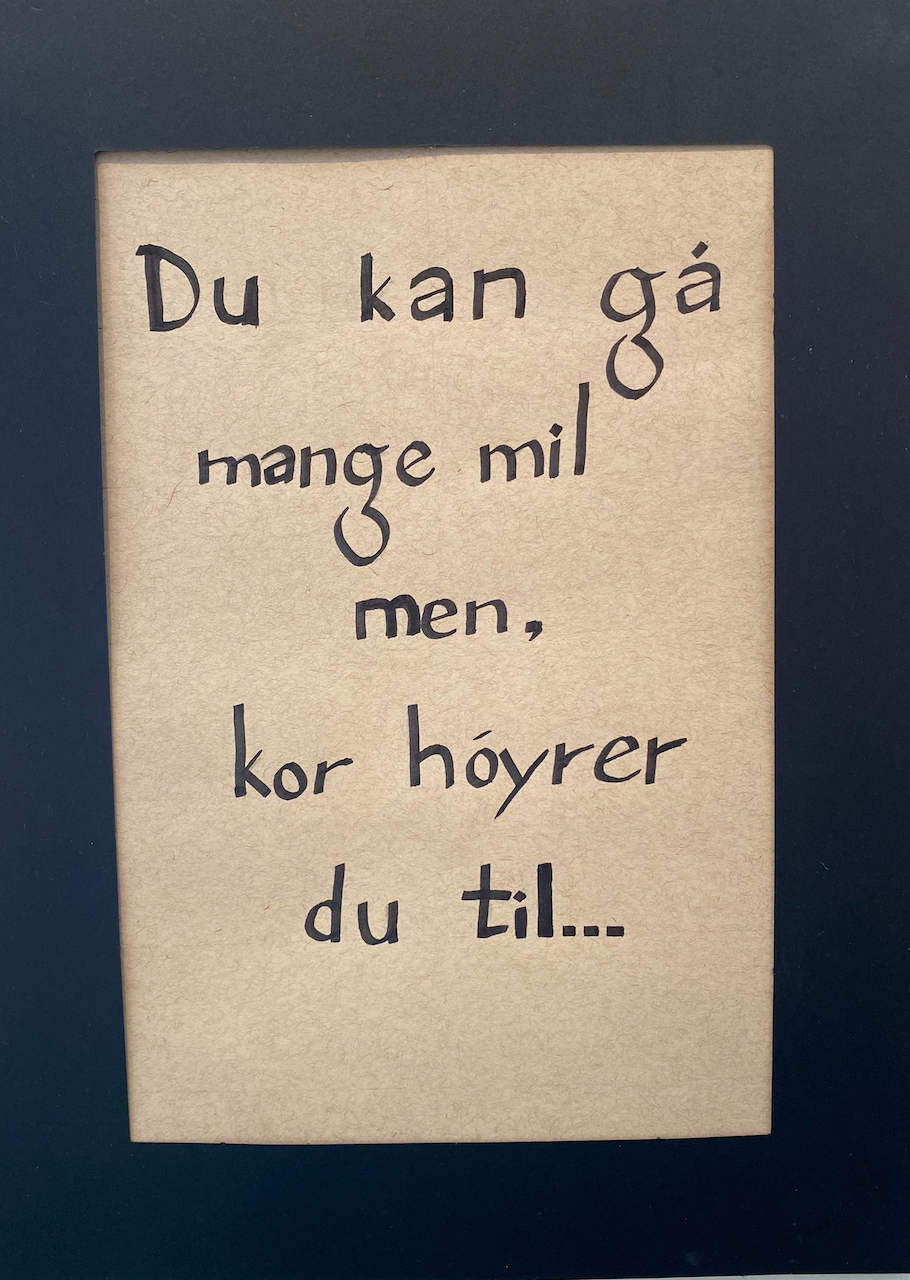 Du kan gá
mange mil
men,
kor hóyrer
du til...